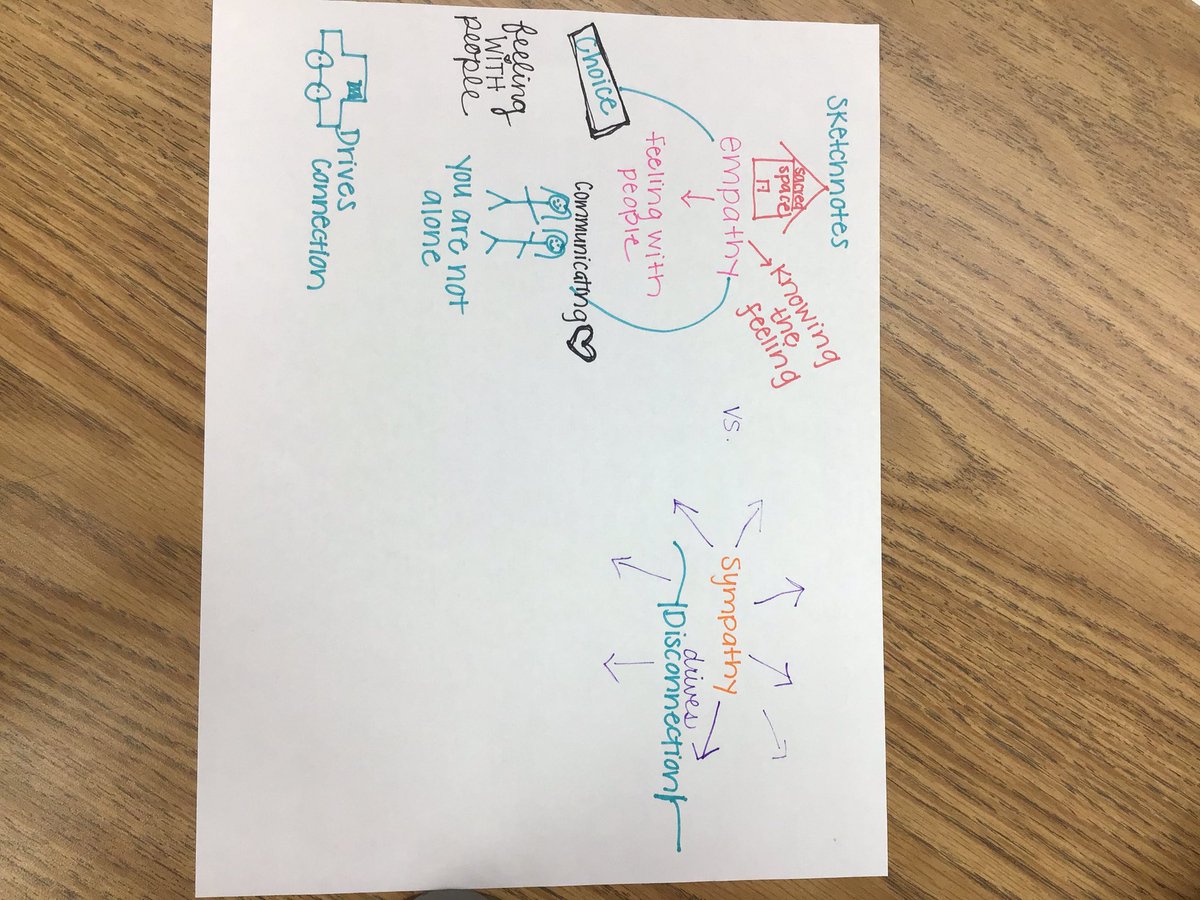 Sketchnotes
sacred
space
Knowing
the
feeling
empathy
feeling with
people
Choice
Communicating
feeling
WITH
people
you are not
alone
Drives
connection
vs.
Sympathy
drives
Disconnection